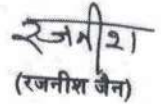 रजनीश
(रजनीश जैन)